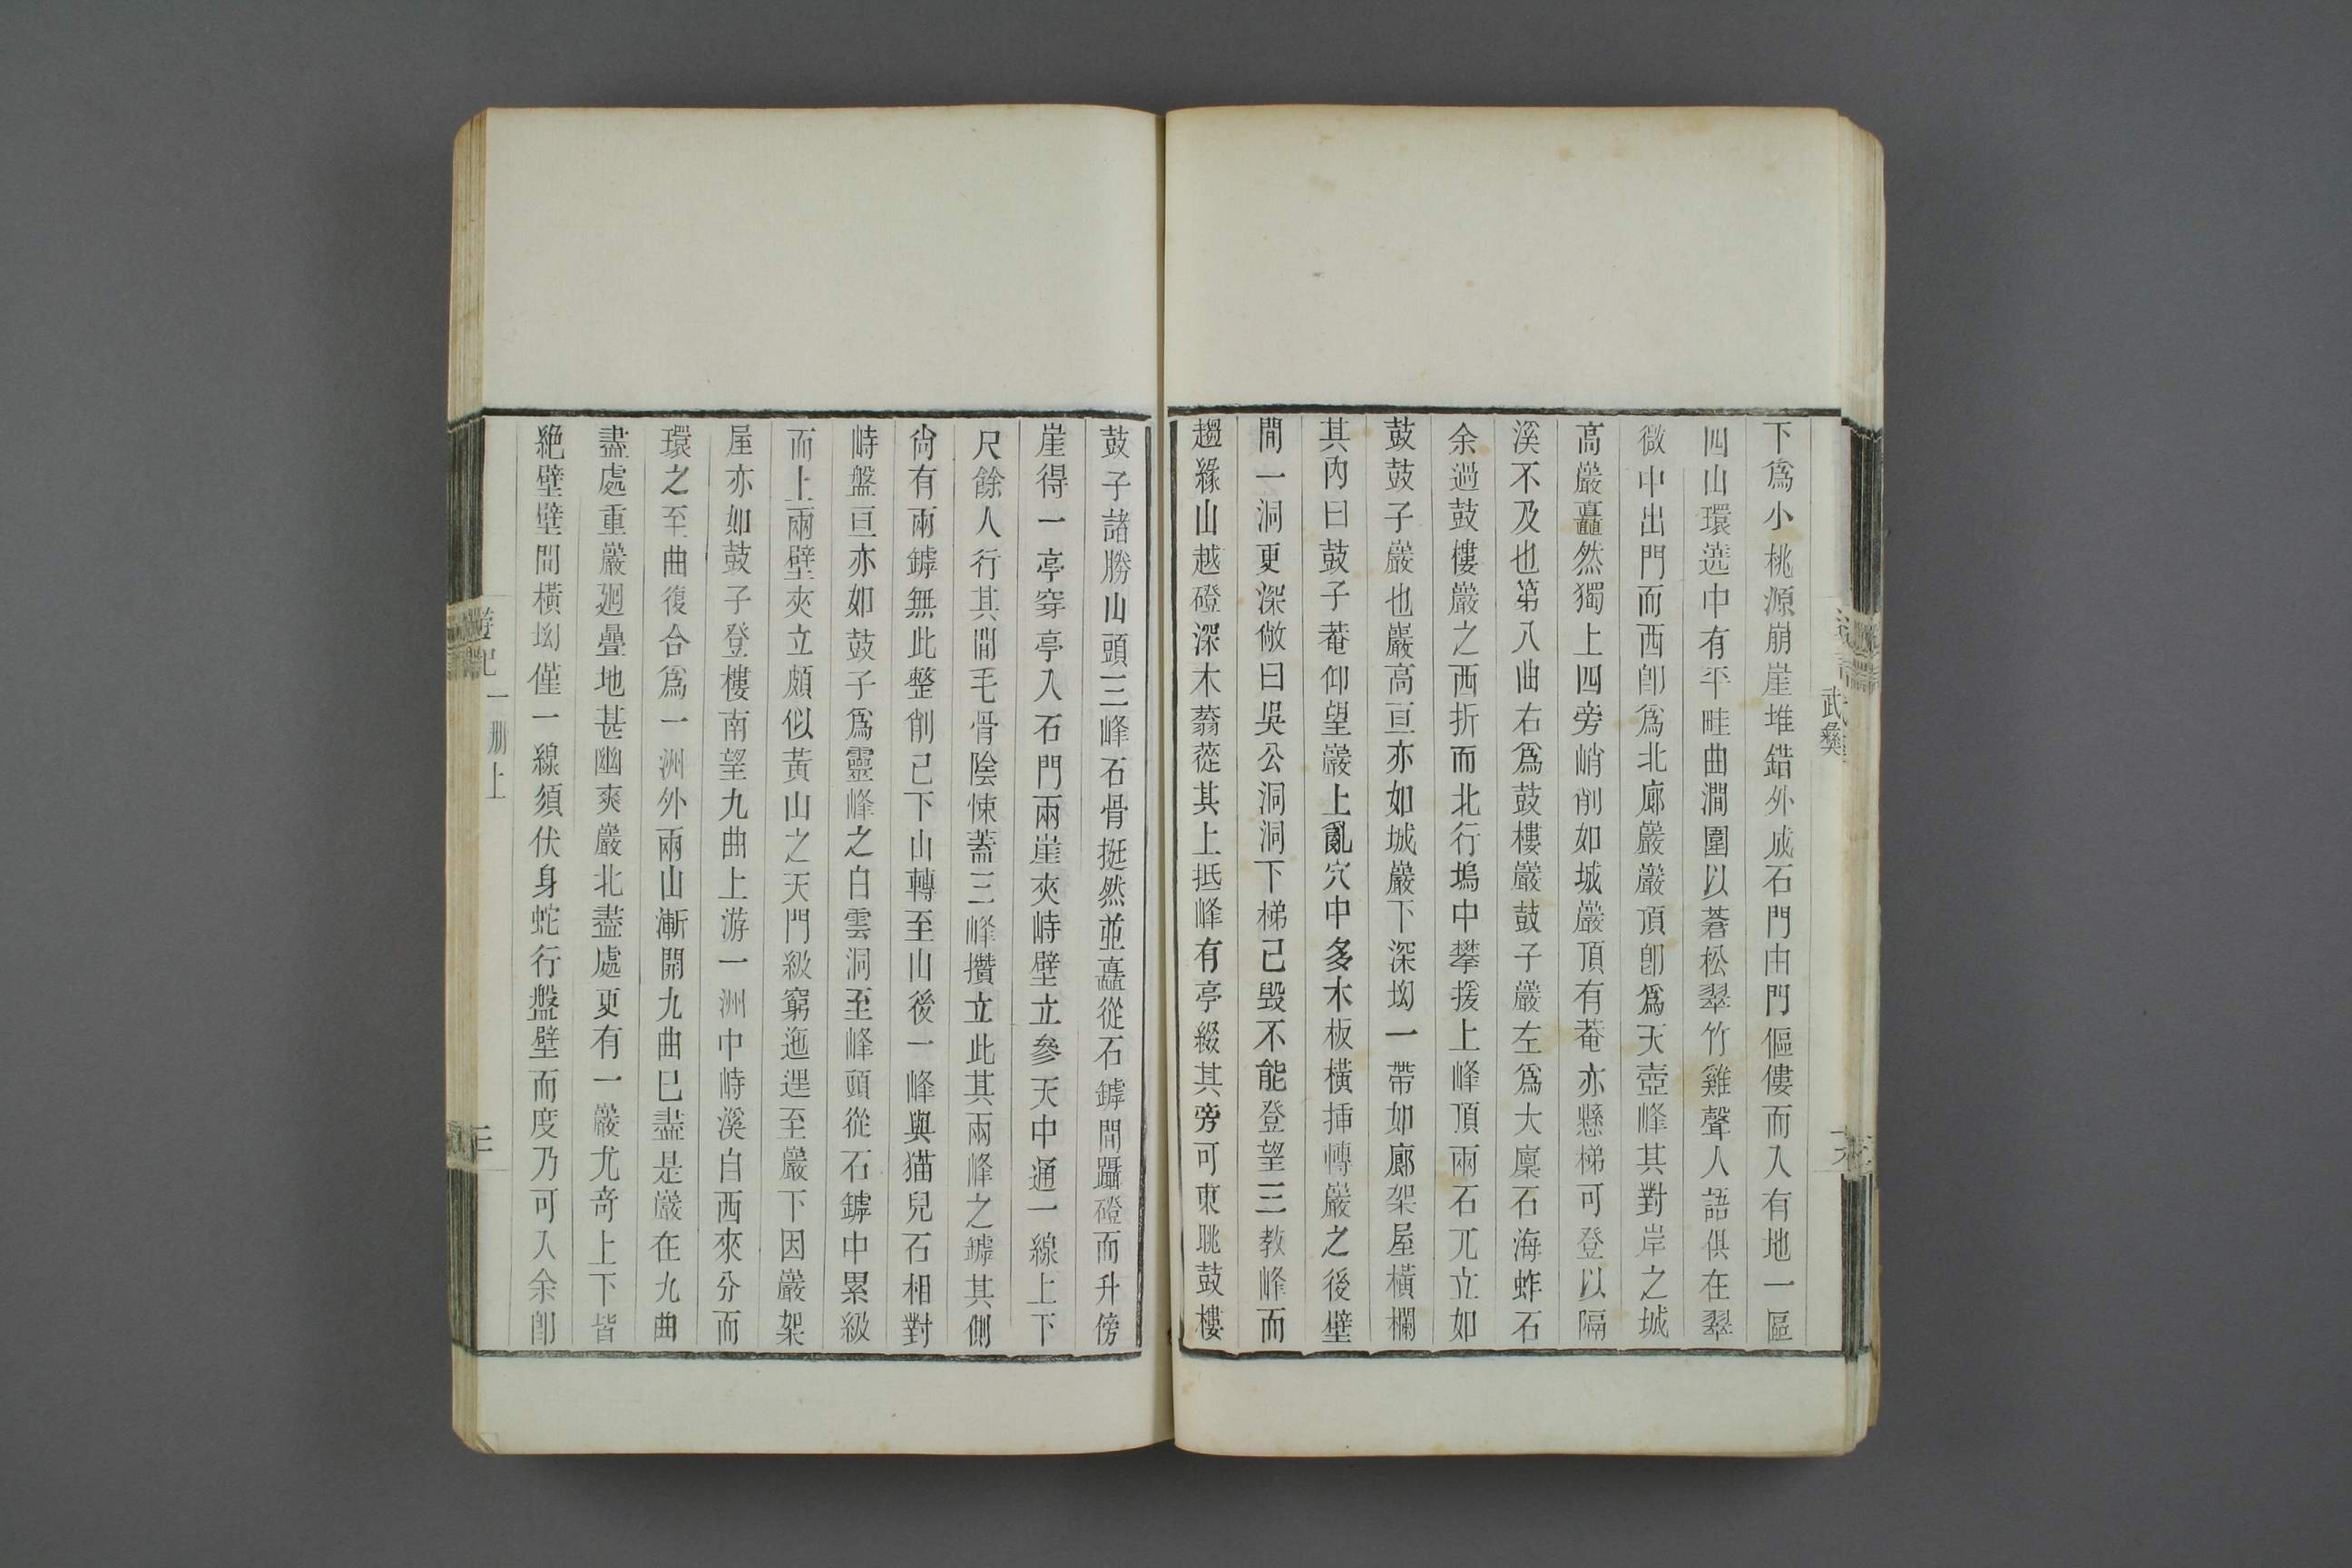 武彝
下爲小桃源崩崖堆錯外成石門由門傴僂而入有地一區
四山環遶中有平畦曲澗圍以蒼松翠竹雞聲人語俱在翠
微中出門而西卽爲北廊巖巖頂卽爲天壺峰其對岸之城
高巖矗然獨上四旁峭削如城巖頂有菴亦懸梯可登以隔
溪不及也第八曲右爲鼓樓巖鼓子巖左爲大廩石海蚱石
余過鼓樓巖之西折而北行塢中攀援上峰頂兩石兀立如
鼓鼓子巖也巖高亘亦如城巖下深坳一帶如廊架屋橫欄
其內曰鼓子菴仰望巖上亂穴中多木板橫揷轉巖之後壁
間一洞更深敞曰吳公洞洞下梯已毁不能登望三教峰而
趨緣山越磴深木蓊蓯其上抵峰有亭綴其旁可東眺鼓樓
鼓子諸勝山頭三峰石骨挺然並矗從石罅間躡磴而升傍
崖得一亭穿亭入石門兩崖夾峙壁立參天中通一線上下
尺餘人行其間毛骨陰悚蓋三峰攢立此其兩峰之罅其側
尙有兩罅無此整削已下山轉至山後一峰與猫兒石相對
峙盤亘亦如鼓子爲靈峰之白雲洞至峰頭從石罅中累級
而上兩壁夾立頗似黃山之天門級窮迤邐至巖下因巖架
屋亦如鼓子登樓南望九曲上游一洲中峙溪自西來分而
環之至曲復合爲一洲外兩山漸開九曲已盡是巖在九曲
盡處重巖廻疊地甚幽爽巖北盡處更有一巖尤奇上下皆
絶壁壁間橫坳僅一線須伏身蛇行盤壁而度乃可入余卽
遊記一册上